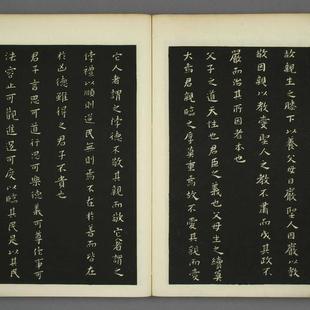 故親生之膝下以養父母日嚴聖人因嚴以教
敬因親以教愛聖人之教不肅而成其政不
嚴而治其所因者本也
父子之道天性也君臣之義也父母生之續莫
大焉君親臨之厚莫重焉故不愛其親而愛
它人者謂之悖德不敬其親而敬它人者謂之
悖禮以順則逆民無則焉不在於善而皆在
於凶德雖得之君子不貴也
君子言思可道行思可樂德義可尊作事可
法容止可觀進退可度以臨其民是以其民